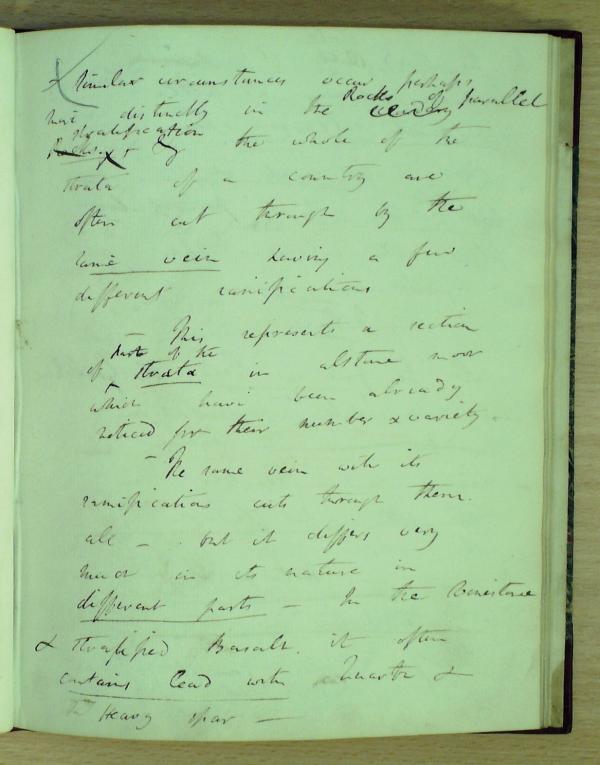 & similar circumstances occur perhaps
most distinctly in the Rocks of parallel
stratification
Rocks. & the whole of the
strata of a country are
often cut through by the
same vein having a few
different ramifications
– This represents a section
of part of the strata in alstone moor
which have been already
noticed for their number & variety –
– The same vein with its
ramifications cuts through them
all – but it differs very
much in its nature in
different parts – In the limestone
& stratified Basalt. it often
contains lead with Quartz &
Heavy spar –